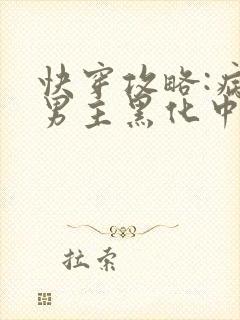 快穿攻略:病
男主黑化中
拉索